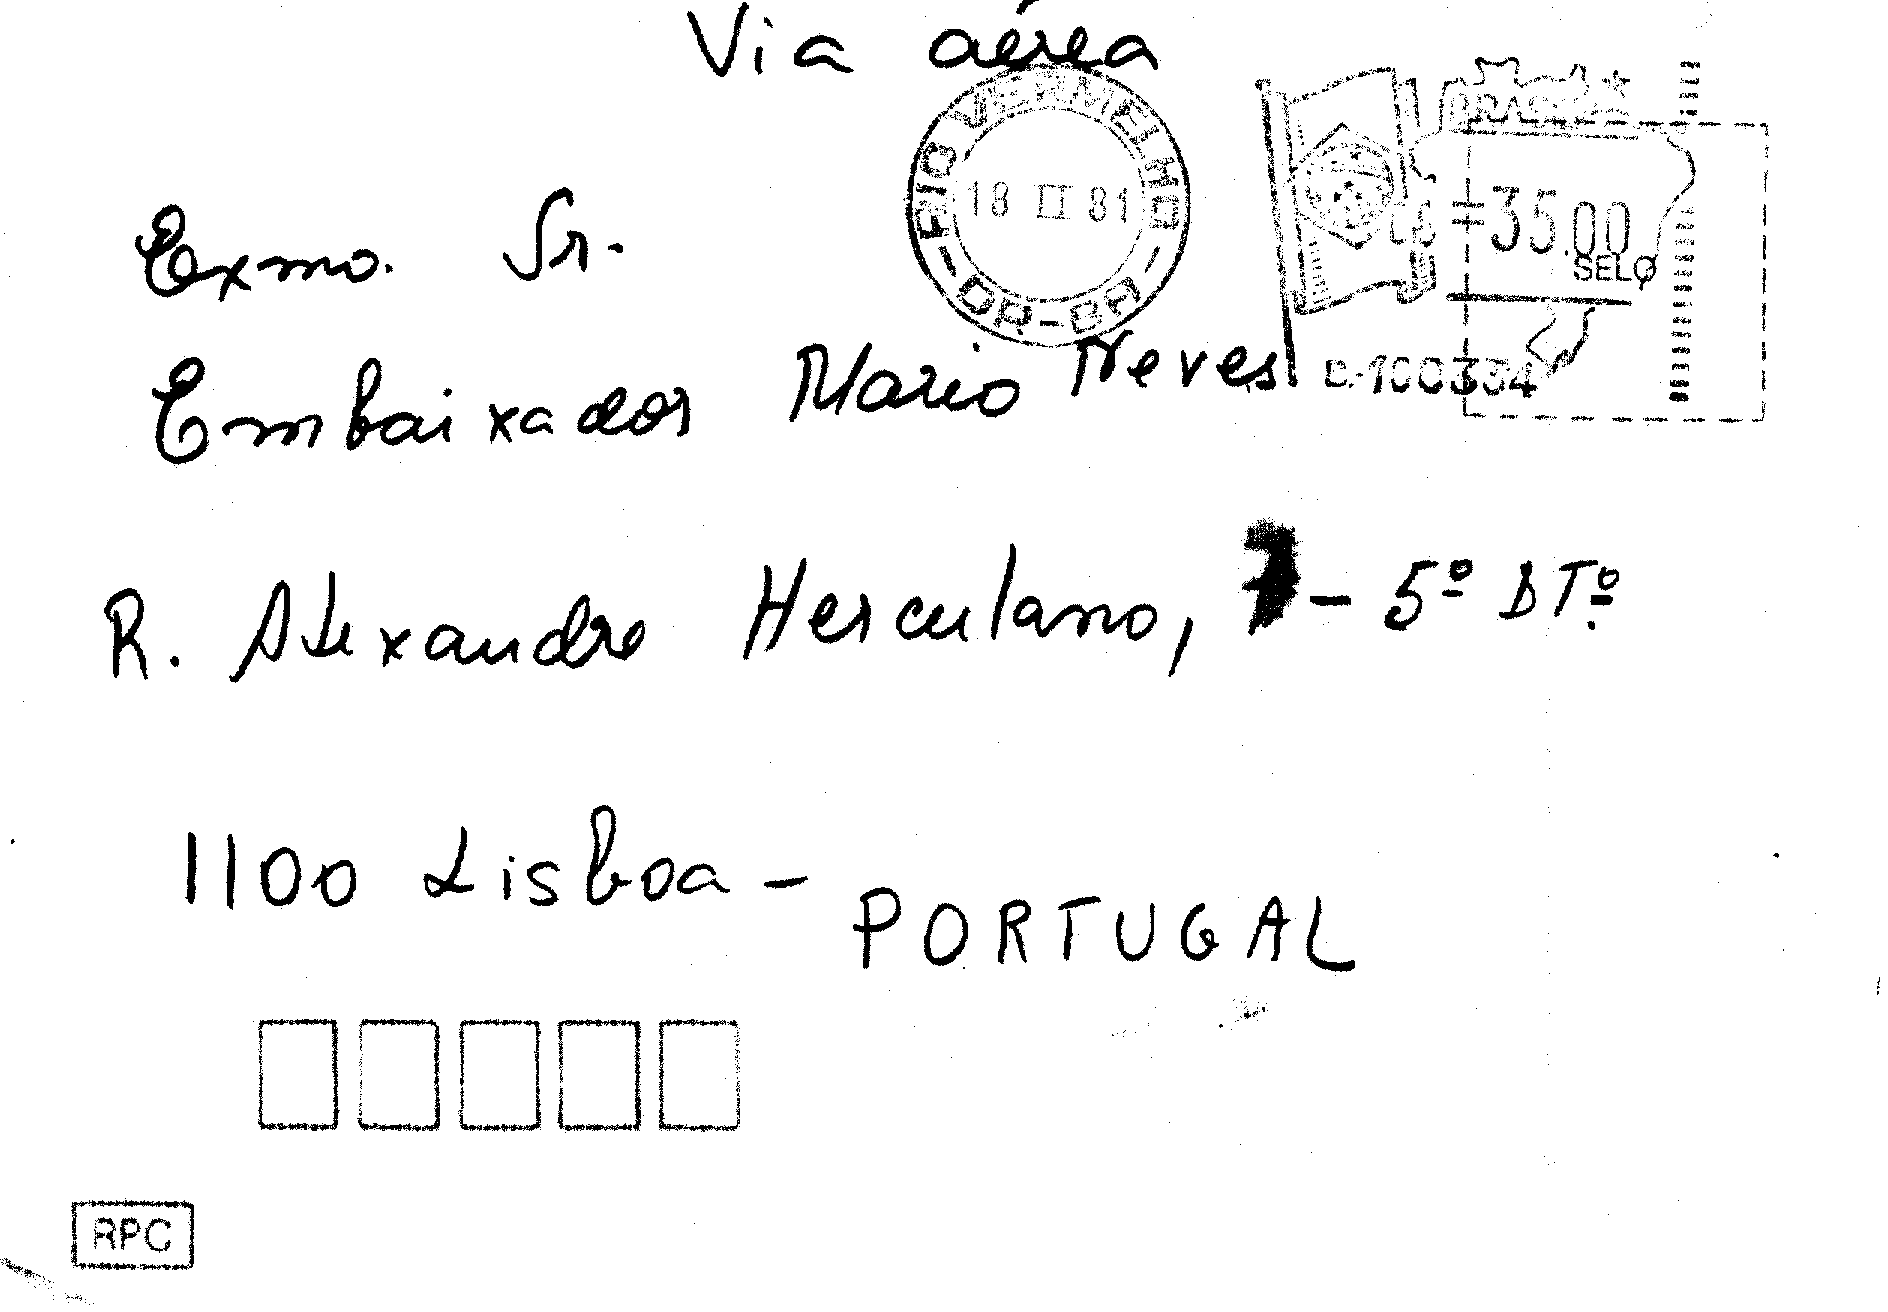 Via aérea
RIO VERMELHO
18 II 81
DR-BA
BRASIL
35.00
SELO
Exmo. Sr.
Embaixador Mario Neves
R. Alexandre Herculano, 7 - 5º DTº
1100 Lisboa -
PORTUGAL
RPC